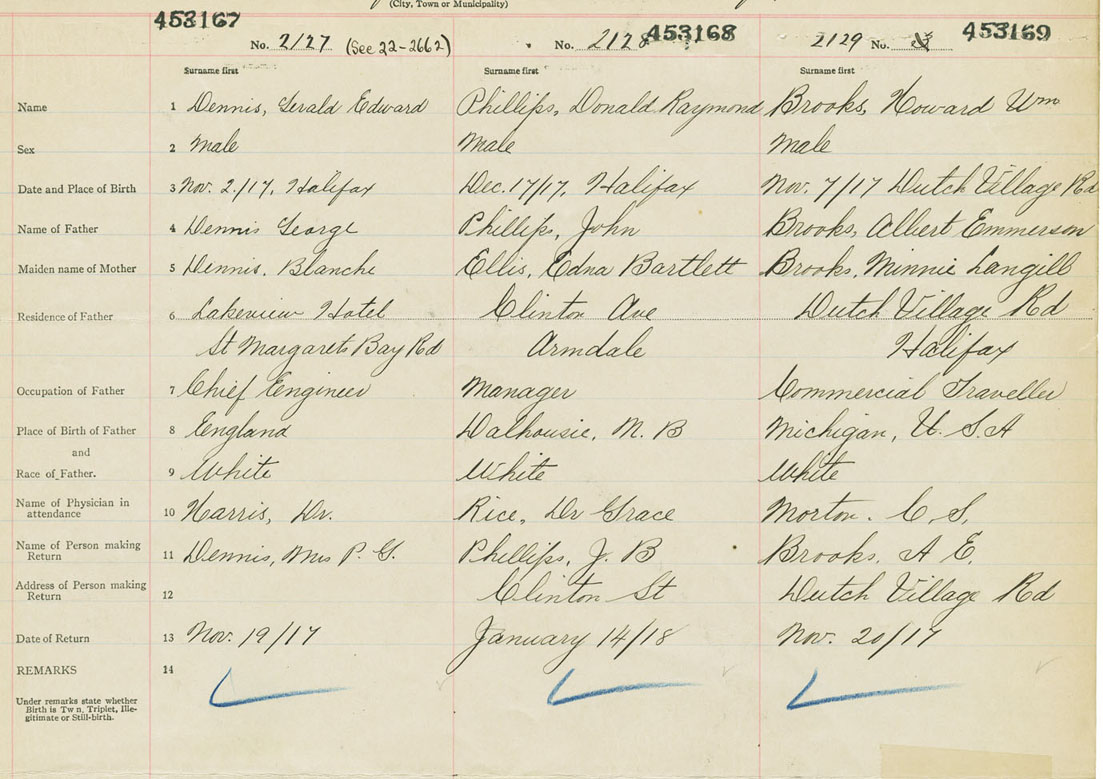 (City, Town or Municipality)
453167 453168 453169
No. 2127 (See 22-2662) No. 2128 2129 No.
Surname first Surname first Surname first
Name 1 Dennis, Gerald Edward Phillips, Donald Raymond Brooks, Howard Wm
Sex 2 Male Male Male
Date and Place of Birth 3 Nov. 2/17, Halifax Dec. 17/17, Halifax Nov. 7/17 Dutch Village Rd
Name of Father 4 Dennis George Phillips, John Brooks, Albert Emmerson
Maiden name of Mother 5 Dennis, Blanche Ellis, Edna Bartlett Brooks, Minnie Langill
Residence of Father 6 Lakeview Hotel Clinton Ave Dutch Village Rd
St Margarets Bay Rd Armdale Halifax
Occupation of Father 7 Chief Engineer Manager Commercial Traveller
Place of Birth of Father 8 England Dalhousie, N. B Michigan, U. S. A
and
Race of Father. 9 White White White
Name of Physician in
attendance 10 Harris, Dr. Rice, Dr Grace Morton. C S.
Name of Person making
Return 11 Dennis, Mrs P. G. Phillips, J. B Brooks, A E.
Address of Person making
Return 12 Clinton St Dutch Village Rd
Date of Return 13 Nov. 19/17 January 14/18 Nov. 20/17
REMARKS 14
Under remarks state whether
Birth is Tw n, Triplet, Ille-
gitimate or Still-birth.